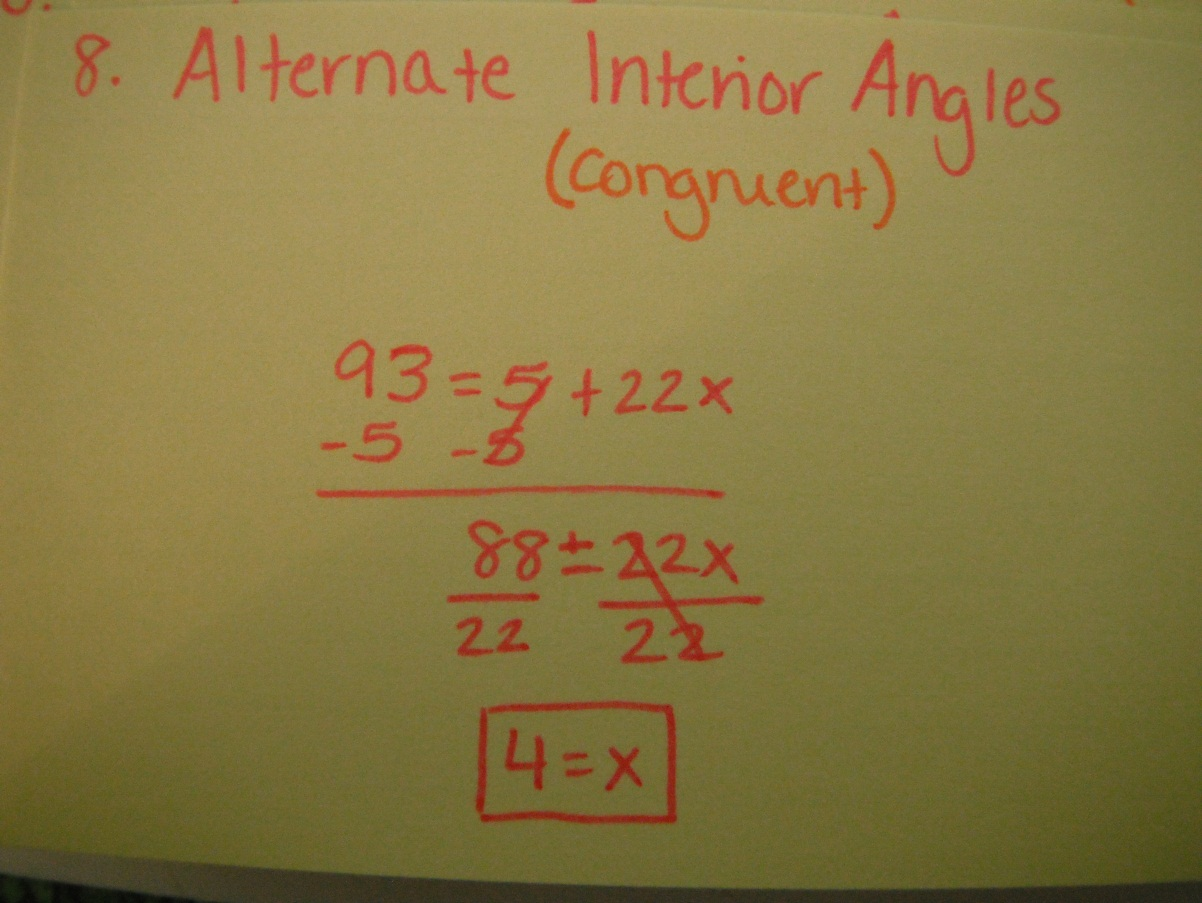 8. Alternate Interior Angles
(congruent)
93 = 5 + 22x
-5 -5
88 = 22x
22 22
4 = x